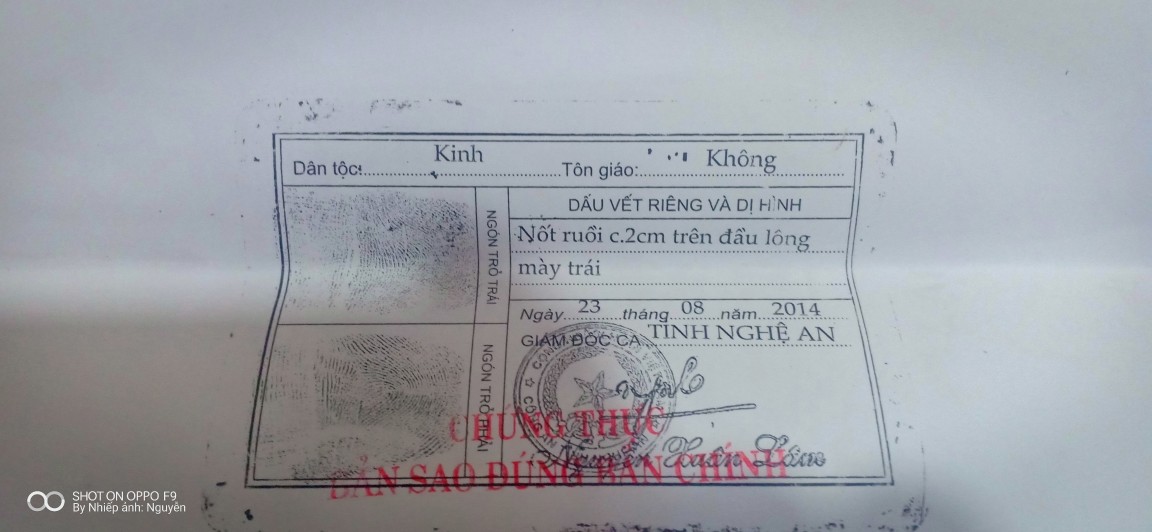 Dân tộc: Kinh Tôn giáo: Không
NGÓN TRỎ TRÁI
DẤU VẾT RIÊNG VÀ DỊ HÌNH
Nốt ruồi c.2cm trên đầu lông
mày trái
Ngày 23 tháng 08 năm 2014
GIÁM ĐỐC CA TỈNH NGHỆ AN
NGÓN TRỎ TRÁI
CHỨNG THỰC
BẢN SAO ĐÚNG BẢN CHÍNH
Nguyễn Xuân Lâm
SHOT ON OPPO F9
By Nhiếp ảnh: Nguyên